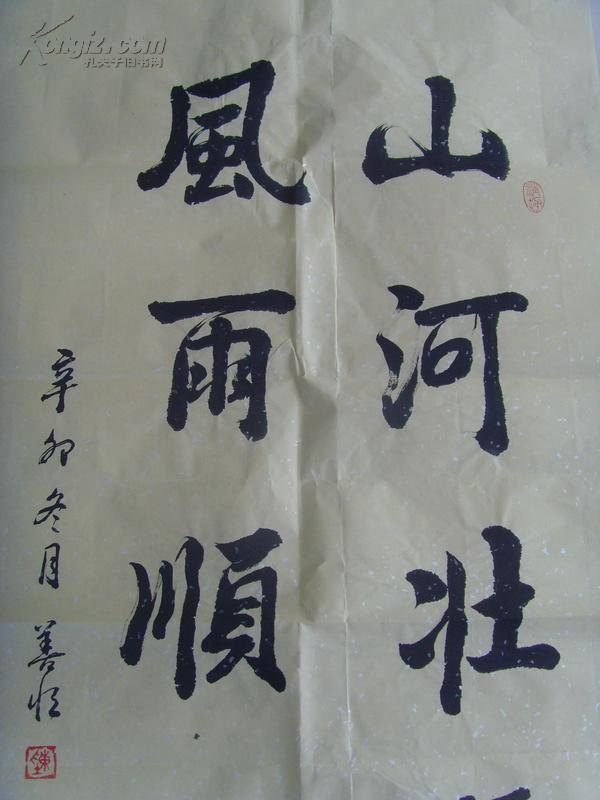 山河壮
風雨順
辛卯冬月 善恒
Kongfz.com
孔夫子旧书网